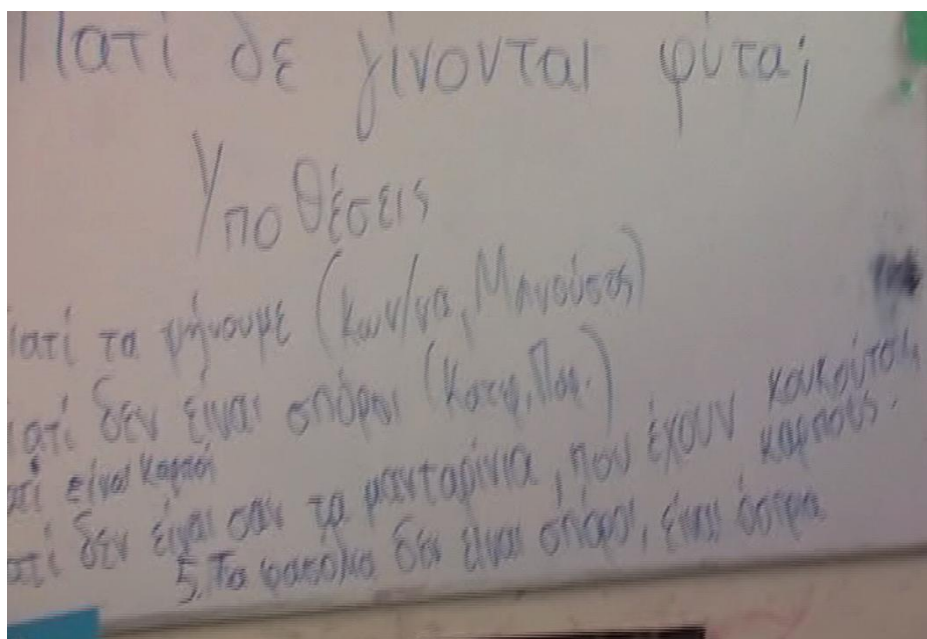 Γιατί δε γίνονται φύτα;
Υποθέσεις
Γιατί τα ψήνουμε (Κων/να, Μανούσος)
Γιατί δεν είναι σπόροι (Κατερ, Παν.)
Γιατί είναι καρποί
Γιατί δεν είναι σαν τα μανταρίνια, που έχουν κουκούτσια, καρπους.
5. Τα φασόλια δεν είναι σπόροι, είναι όσπρα